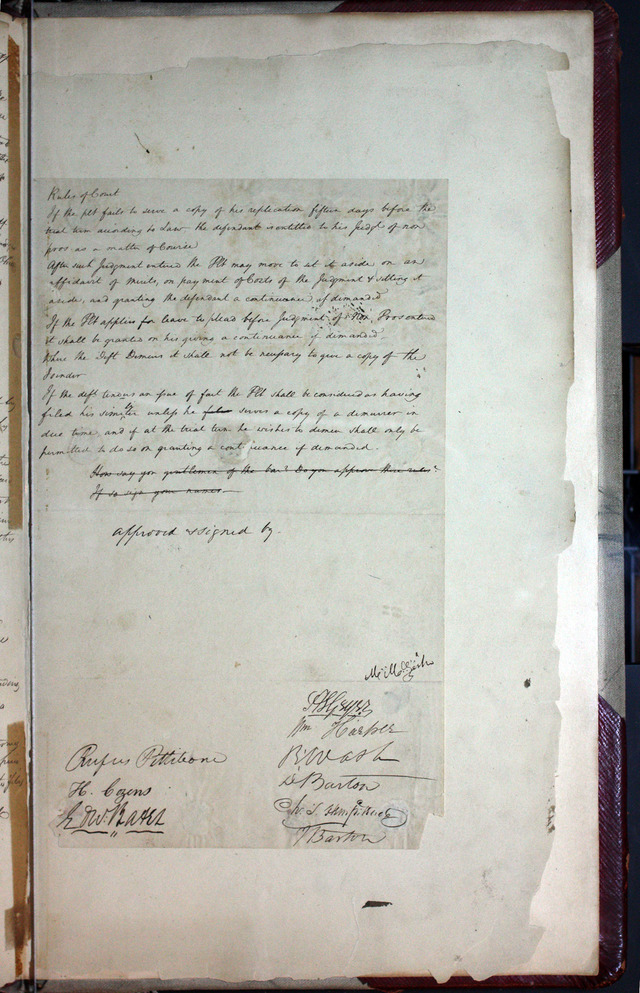 Rules of Court
If the plt fails to serve a copy of his replication fifteen days before the
trial term according to Law the defendant is entitled to his Judgt of non
pros as a matter of Course
After such Judgment entered the Plt may move to set it aside on an
affidavit of Merits, on payment of Costs of the Judgment & setting it
aside, and granting the defendant a continuance if demanded
If the Plt applies for leave to plead before Judgment of Non Pros entered
it shall be granted on his giving a continuance if demanded
Where the Deft Demurs it shall not be necessary to give a copy of the
Joinder
If the deft tenders an issue of fact the Plt shall be considered as having
filed his similiter unless he serves a copy of a demurrer in
due time and if at the trial term he wishes to demur shall only be
permitted to do so on granting a continuance if demanded.
How say you gentlemen of the bar? Do you approve these rules?
If so sign your names.
approved & signed by.
H S Geyer
Wm Harper
Rufus Pettibone
R Wash
H. Cozens
D Barton
Edw. Bates
J Barton